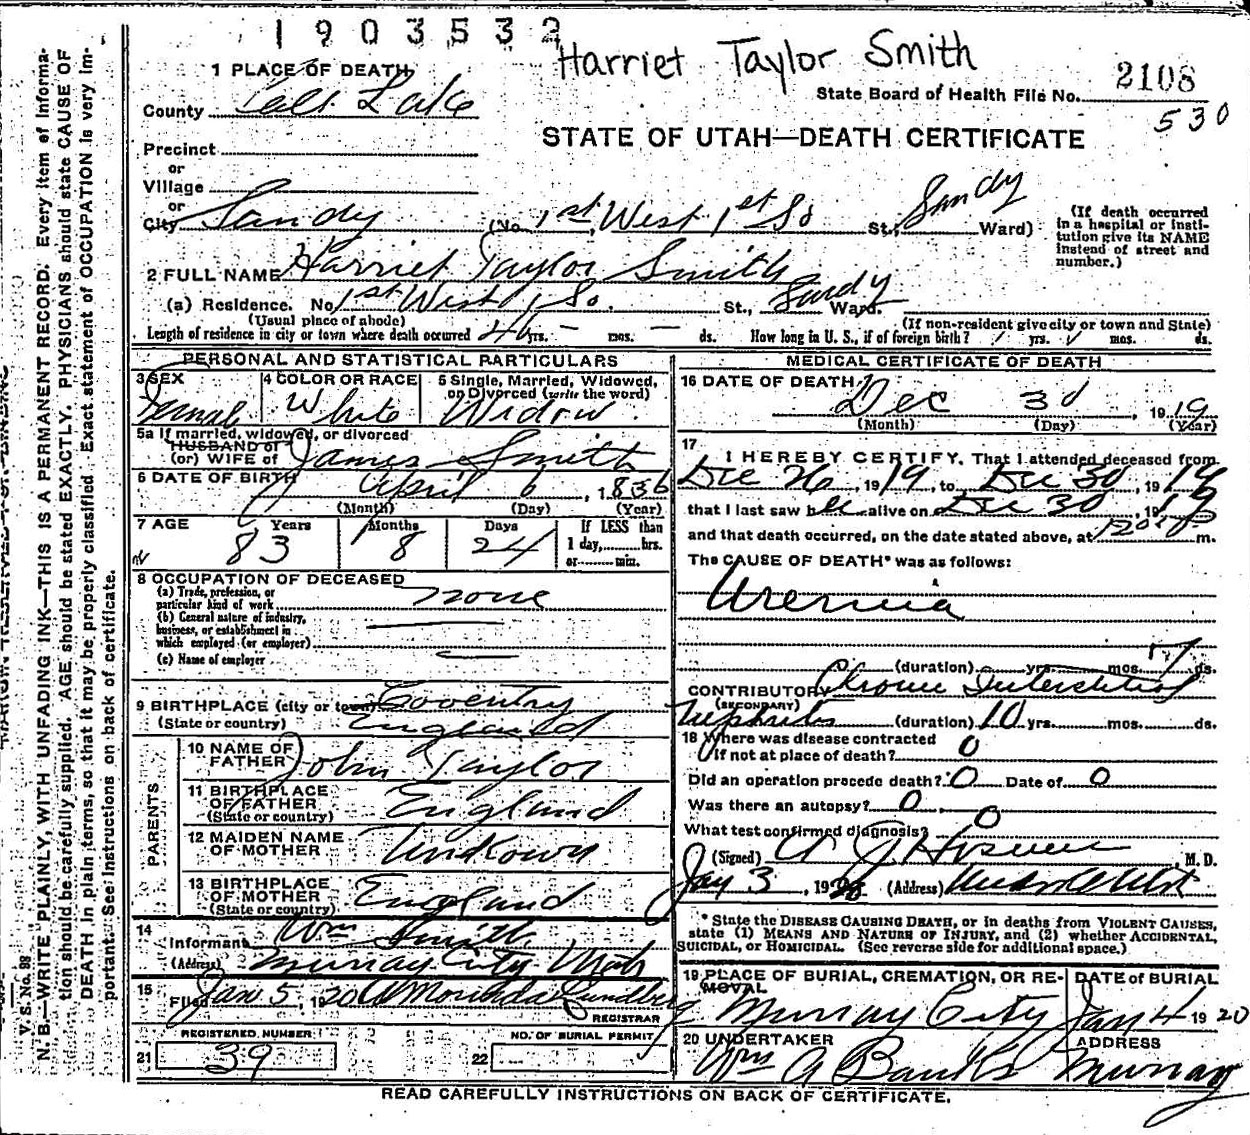 1903532
Harriet Taylor Smith
1 PLACE OF DEATH
County Salt Lake
State Board of Health File No. 2108
530
STATE OF UTAH—DEATH CERTIFICATE
Precinct
or
Village
or
City Sandy (No. 1st West 1st So St., Sandy Ward)
(If death occurred in a hospital or insti-
tution give its NAME
instead of street and
number.)
2 FULL NAME Harriet Taylor Smith
(a) Residence. No. 1st West 1 So. St., Sandy Ward.
(Usual place of abode) (If non-resident give city or town and State)
Length of residence in city or town where death occurred yrs. — mos. — ds. How long in U. S., if of foreign birth? yrs. mos. ds.
PERSONAL AND STATISTICAL PARTICULARS
3 SEX Femal
4 COLOR OR RACE White
5 Single, Married, Widowed,
or Divorced (write the word)
Widow
5a If married, widowed, or divorced
HUSBAND of
(or) WIFE of James Smith
6 DATE OF BIRTH April 6, 1836
(Month) (Day) (Year)
7 AGE Years Months Days If LESS than
83 8 24 1 day, hrs.
or min.
8 OCCUPATION OF DECEASED
(a) Trade, profession, or
particular kind of work none
(b) General nature of industry,
business, or establishment in
which employed (or employer)
(c) Name of employer
9 BIRTHPLACE (city or town) Coventry
(State or country) England
PARENTS
10 NAME OF
FATHER John Taylor
11 BIRTHPLACE
OF FATHER England
(State or country)
12 MAIDEN NAME
OF MOTHER Unkown
13 BIRTHPLACE
OF MOTHER England
(State or country)
14
Informant Wm Smith
(Address) Murray City Utah
15
Filed Jan 5, 1920 Lundberg
REGISTRAR
REGISTERED NUMBER NO. OF BURIAL PERMIT
21 39 22
MEDICAL CERTIFICATE OF DEATH
16 DATE OF DEATH
Dec 30, 1919
(Month) (Day) (Year)
17
I HEREBY CERTIFY, That I attended deceased from
Dec 26, 1919, to Dec 30, 1919
that I last saw her alive on Dec 30, 1919
and that death occurred, on the date stated above, at m.
The CAUSE OF DEATH* was as follows:
Uremia
(duration) yrs. mos. 7 ds.
CONTRIBUTORY Chronic Interstitial
(SECONDARY)
Nephritis (duration) 10 yrs. mos. ds.
18 Where was disease contracted
if not at place of death? 0
Did an operation precede death? 0 Date of 0
Was there an autopsy? 0
What test confirmed diagnosis? 0
(Signed) M. D.
Jan 3, 1920 (Address)
* State the DISEASE CAUSING DEATH, or in deaths from VIOLENT CAUSES,
state (1) MEANS AND NATURE OF INJURY, and (2) whether ACCIDENTAL,
SUICIDAL, or HOMICIDAL. (See reverse side for additional space.)
19 PLACE OF BURIAL, CREMATION, OR RE-
MOVAL
Murray City
DATE of BURIAL
Jan 4 1920
20 UNDERTAKER
Wm A Banks
ADDRESS
Murray
READ CAREFULLY INSTRUCTIONS ON BACK OF CERTIFICATE.
V. S. No. 88
N. B.—WRITE PLAINLY, WITH UNFADING INK—THIS IS A PERMANENT RECORD. Every item of informa-
tion should be carefully supplied. AGE should be stated EXACTLY. PHYSICIANS should state CAUSE OF
DEATH in plain terms, so that it may be properly classified. Exact statement of OCCUPATION is very im-
portant. See instructions on back of certificate.